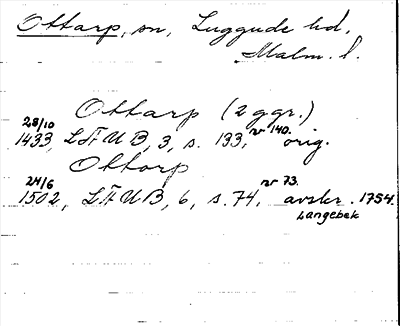 Ottarp, sn, Luggude hd,
Malm. l.
Ottarp (2 ggr.)
28/10 1433, LÄUB, 3, s. 133, nr 140. orig.
Ottorp
24/6 1502, LÄUB, 6, s. 74, nr 73. avskr. 1754.
Langebek